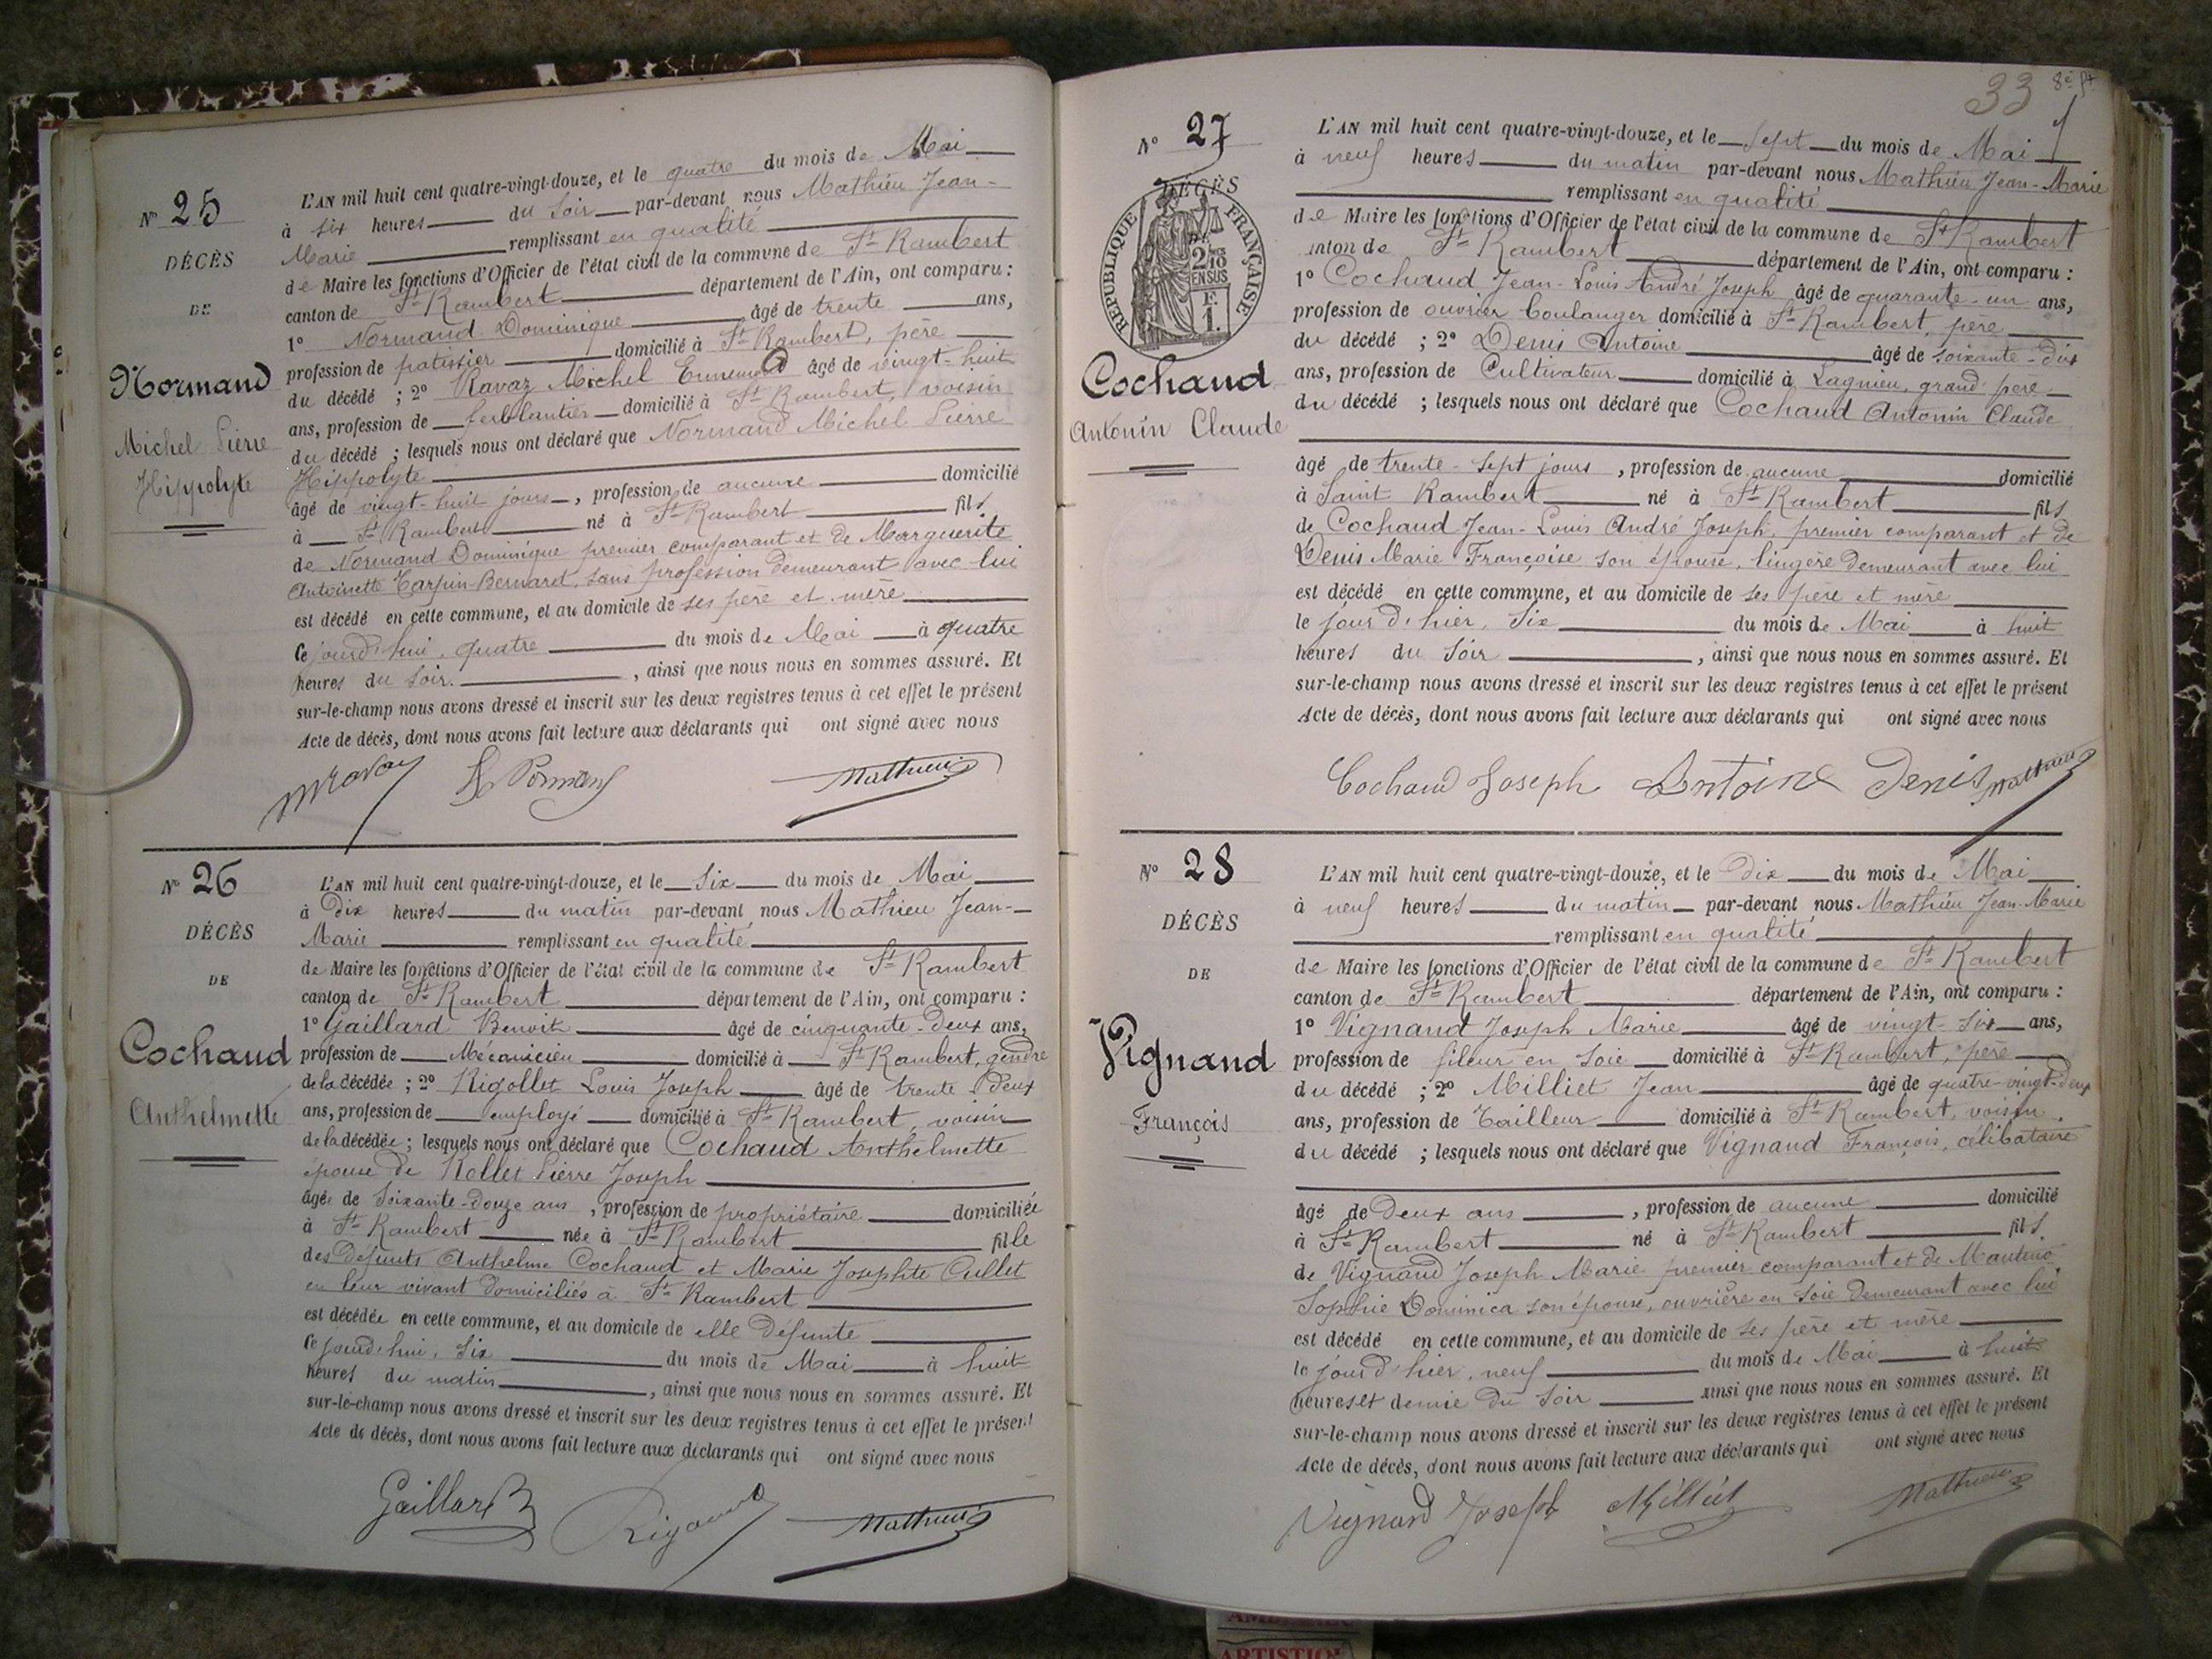 Nº 25
DÉCÈS
DE
Normand
Michel Pierre
Hippolyte
L'AN mil huit cent quatre-vingt-douze, et le quatre du mois de Mai
à six heures du soir par-devant nous Mathieu Jean-
Marie remplissant en qualité
de Maire les fonctions d'Officier de l'état civil de la commune de St Rambert
canton de St Rambert département de l'Ain, ont comparu :
1º Normand Dominique âgé de trente ans,
profession de patissier domicilié à St Rambert, père
du décédé ; 2º Ravaz Michel Ennemond âgé de vingt-huit
ans, profession de ferblantier domicilié à St Rambert, voisin
du décédé ; lesquels nous ont déclaré que Normand Michel Pierre
Hippolyte domicilié
âgé de vingt-huit jours, profession de aucune
à St Rambert né à St Rambert fils
de Normand Dominique premier comparant et de Marguerite
Antoinette Carpin-Bernard, sans profession demeurant avec lui
est décédé en cette commune, et au domicile de ses père et mère
Ce jourd'hui, quatre du mois de Mai à quatre
heures du soir. , ainsi que nous nous en sommes assuré. Et
sur-le-champ nous avons dressé et inscrit sur les deux registres tenus à cet effet le présent
Acte de décès, dont nous avons fait lecture aux déclarants qui ont signé avec nous
Mathieu
Nº 26
DÉCÈS
DE
Cochaud
Anthelmette
L'AN mil huit cent quatre-vingt-douze, et le six du mois de Mai
à Dix heures du matin par-devant nous Mathieu Jean-
Marie remplissant en qualité
de Maire les fonctions d'Officier de l'état civil de la commune de St Rambert
canton de St Rambert département de l'Ain, ont comparu :
1º Gaillard Benoit âgé de cinquante-deux ans,
profession de Mécanicien domicilié à St Rambert, gendre
de la décédée ; 2º Rigollet Louis Joseph âgé de trente deux
ans, profession de employé domicilié à St Rambert, voisin
de la décédée ; lesquels nous ont déclaré que Cochaud Anthelmette
épouse de Nollet Pierre Joseph
âgée de soixante-douze ans, profession de propriétaire domiciliée
à St Rambert née à St Rambert fille
des défunts Anthelme Cochaud et Marie Josephte Cullet
en leur vivant domiciliés à St Rambert
est décédée en cette commune, et au domicile de elle défunte
Ce jourd'hui, six du mois de Mai à huit
heures du matin , ainsi que nous nous en sommes assuré. Et
sur-le-champ nous avons dressé et inscrit sur les deux registres tenus à cet effet le présent
Acte de décès, dont nous avons fait lecture aux déclarants qui ont signé avec nous
Gaillard B Mathieu
33
Nº 27
DÉCÈS
RÉPUBLIQUE FRANÇAISE
2/10
EN SUS
F.
1.
Cochaud
Antonin Claude
L'AN mil huit cent quatre-vingt-douze, et le sept du mois de Mai
à neuf heures du matin par-devant nous Mathieu Jean-Marie
remplissant en qualité
de Maire les fonctions d'Officier de l'état civil de la commune de St Rambert
anton de St Rambert département de l'Ain, ont comparu :
1º Cochaud Jean-Louis André Joseph âgé de quarante-un ans,
profession de ouvrier boulanger domicilié à St Rambert, père
du décédé ; 2º Denis Antoine âgé de soixante-dix
ans, profession de Cultivateur domicilié à Lagnieu, grand père
du décédé ; lesquels nous ont déclaré que Cochaud Antonin Claude
âgé de trente-sept jours, profession de aucune domicilié
à Saint Rambert né à St Rambert fils
de Cochaud Jean-Louis André Joseph, premier comparant et de
Denis Marie Françoise son épouse, lingère demeurant avec lui
est décédé en cette commune, et au domicile de ses père et mère
le jour d'hier, six du mois de Mai à huit
heures du soir , ainsi que nous nous en sommes assuré. Et
sur-le-champ nous avons dressé et inscrit sur les deux registres tenus à cet effet le présent
Acte de décès, dont nous avons fait lecture aux déclarants qui ont signé avec nous
Cochaud Joseph Antoine Denis Mathieu
Nº 28
DÉCÈS
DE
Vignand
François
L'AN mil huit cent quatre-vingt-douze, et le Dix du mois de Mai
à neuf heures du matin par-devant nous Mathieu Jean-Marie
remplissant en qualité
de Maire les fonctions d'Officier de l'état civil de la commune de St Rambert
canton de St Rambert département de l'Ain, ont comparu :
1º Vignand Joseph Marie âgé de vingt-six ans,
profession de fileur en soie domicilié à St Rambert, père
du décédé ; 2º Milliet Jean âgé de quatre-vingt-deux
ans, profession de Tailleur domicilié à St Rambert, voisin
du décédé ; lesquels nous ont déclaré que Vignand François, célibataire
âgé de Deux ans , profession de aucune domicilié
à St Rambert né à St Rambert fils
de Vignand Joseph Marie premier comparant et de
Sophie Dominica son épouse, ouvrière en soie demeurant avec lui
est décédé en cette commune, et au domicile de ses père et mère
le jour d'hier, neuf du mois de Mai à huit
heures et demie du soir ainsi que nous nous en sommes assuré. Et
sur-le-champ nous avons dressé et inscrit sur les deux registres tenus à cet effet le présent
Acte de décès, dont nous avons fait lecture aux déclarants qui ont signé avec nous
Vignand Joseph Milliet Mathieu